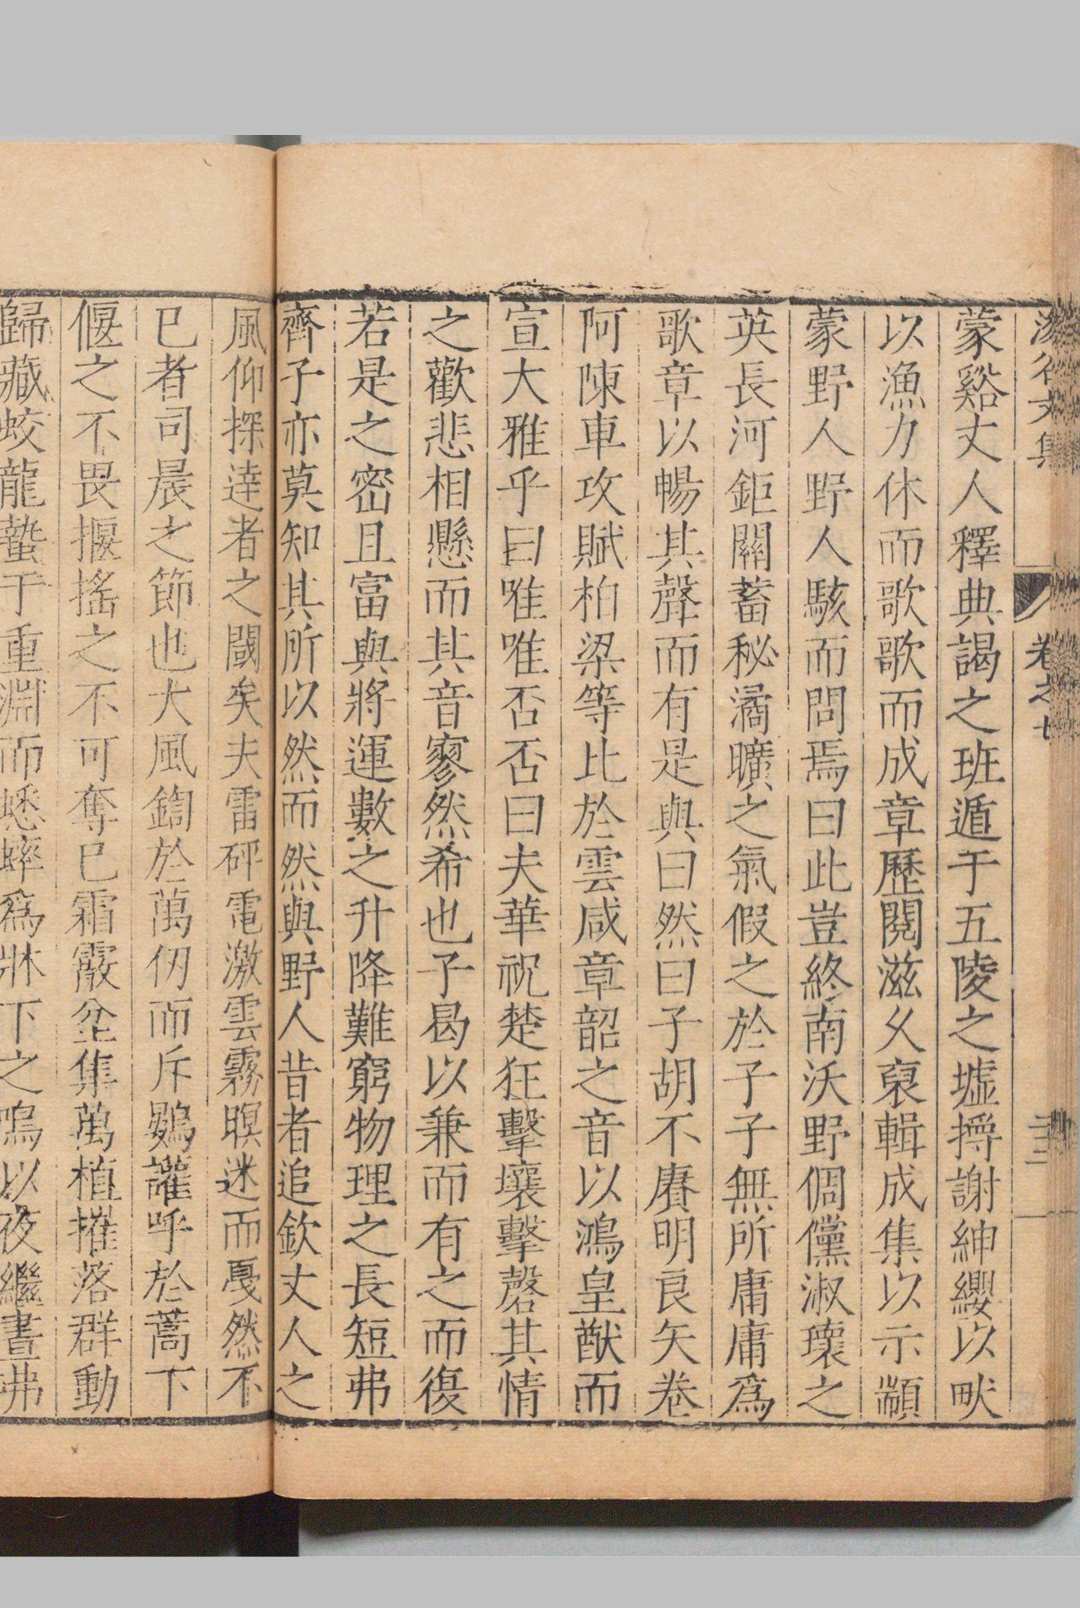 卷之七
蒙谿丈人釋典謁之班遁于五陵之墟撙謝紳纓以畎
以漁力休而歌歌而成章歷閱滋久裒輯成集以示顓
蒙野人野人駭而問焉曰此豈終南沃野倜儻淑瓌之
英長河鉅關蓄秘潏曠之氣假之於子子無所庸庸爲
歌章以暢其聲而有是與曰然曰子胡不賡明良矢卷
阿陳車攻賦柏梁等比於雲咸章韶之音以鴻皇猷而
宣大雅乎曰唯唯否否曰夫華祝楚狂擊壤擊磬其情
之歡悲相懸而其音寥然希也子曷以兼而有之而復
若是之密且富與將運數之升降難窮物理之長短弗
齊子亦莫知其所以然而然與野人昔者追欽丈人之
風仰探逹者之閫矣夫雷砰電激雲霧暝迷而戞然不
已者司晨之節也大風鍧於萬仞而斥鷃讙呼於蒿下
偃之不畏揠搖之不可奪已霜霰坌集萬植摧落群動
歸藏蛟龍蟄于重淵而蟋蟀爲牀下之鳴以夜繼晝弗